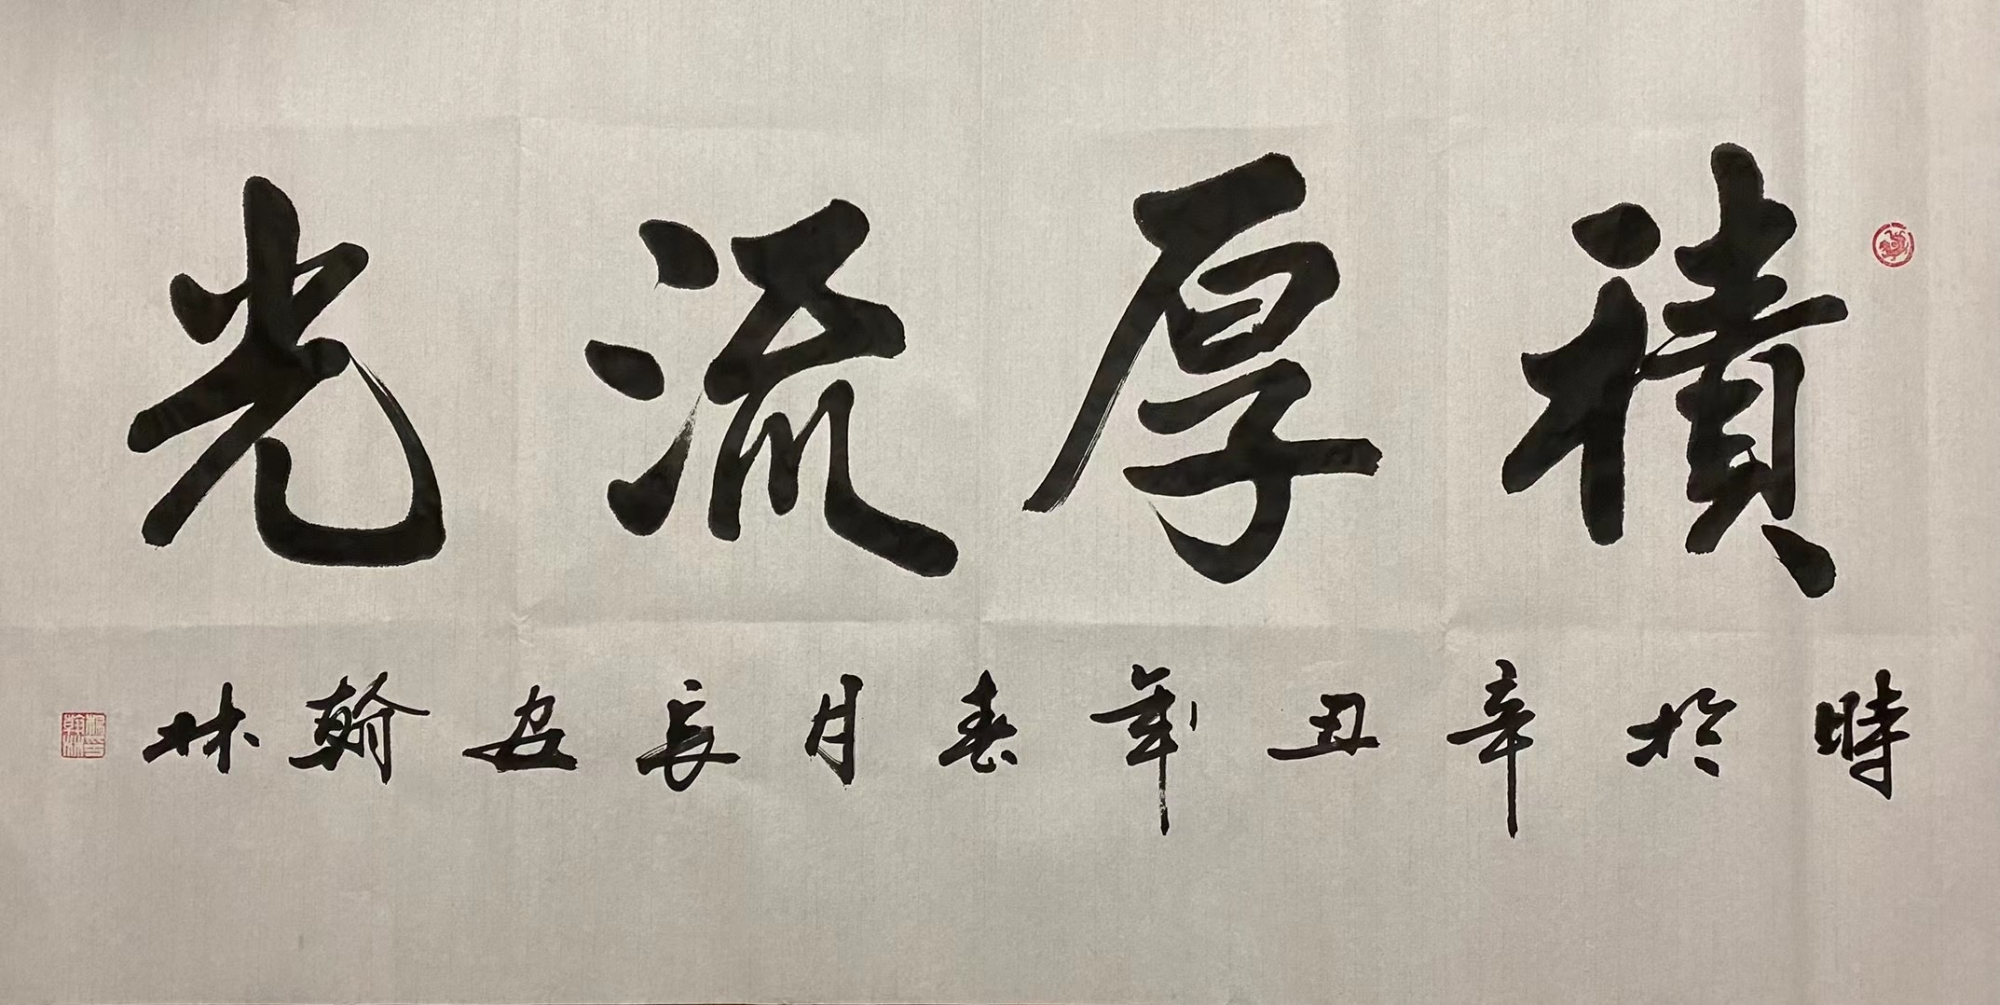 積厚流光
時於辛丑年春月長安翰林